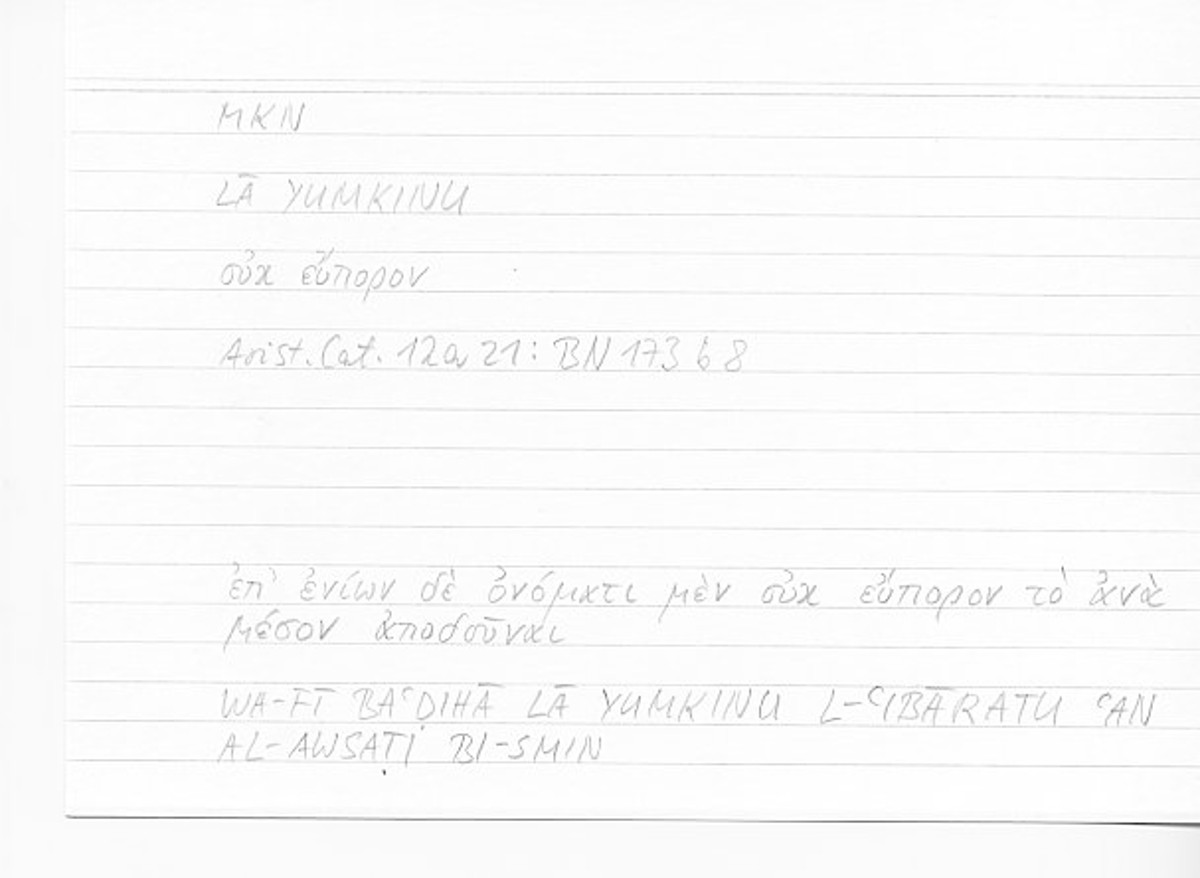 MKN
LĀ YUMKINU
οὐκ εὔπορον
Arist. Cat. 12a 21: BN 173 b 8
ἐπ' ἐνίων δὲ ὀνόματι μὲν οὐκ εὔπορον τὸ ἀνὰ
μέσον ἀποδοῦναι
WA-FĪ BAʿḌIHĀ LĀ YUMKINU L-ʿIBĀRATU ʿAN
AL-AWSAṬI BI-SMIN